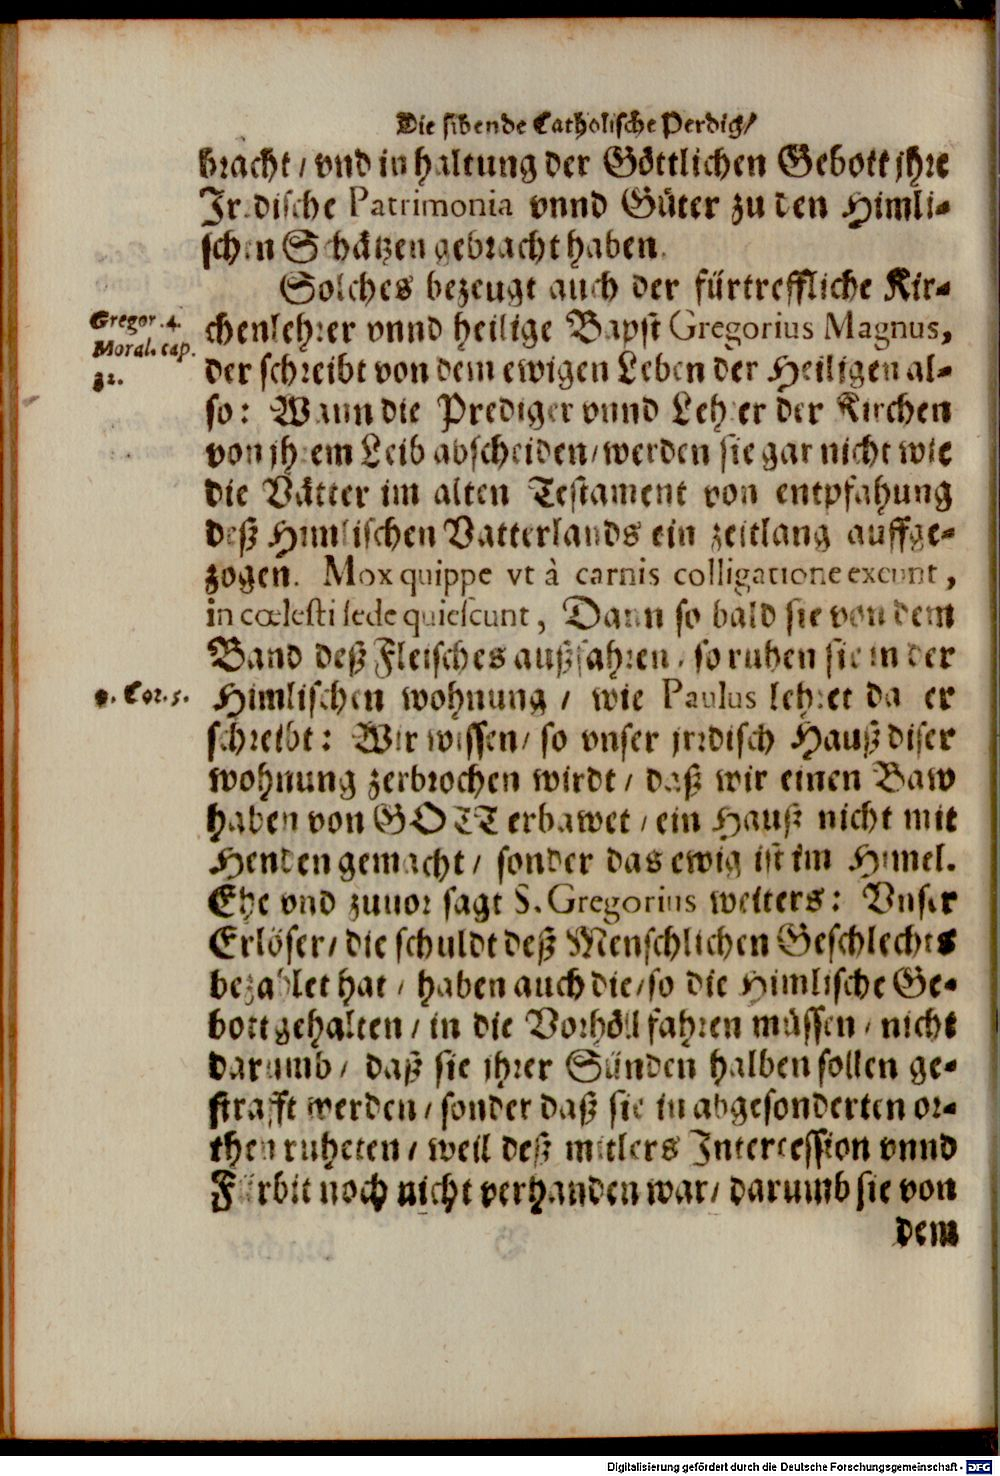 Die sibende Catholische Perdig/
bracht / vnd in haltung der Göttlichen Gebott jhre
Jrꝛdische Patrimonia vnnd Güter zu den Himli-
schen Schätzen gebracht haben.
Solches bezeugt auch der fürtreffliche Kir-
Gregor. 4.
Moral. cap.
32.
chenlehrer vnnd heilige Bapst Gregorius Magnus,
der schreibt von dem ewigen Leben der Heiligen al-
so: Wann die Prediger vnnd Lehrer der Kirchen
von jhrem Leib abscheiden / werden sie gar nicht wie
die Vätter im alten Testament von entpfahung
deß Himlischen Vatterlands ein zeitlang auffge-
zogen. Mox quippe vt à carnis colligatione exeunt,
in cœlesti sede quiescunt, Dann so bald sie von dem
Band deß Fleisches außfahren, so ruhen sie in der
2. Cor. 5.
Himlischen wohnung / wie Paulus lehret da er
schreibt: Wir wissen / so vnser jrꝛdisch Hauß diser
wohnung zerbrochen wirdt / daß wir einen Baw
haben von GOTT erbawet / ein Hauß nicht mit
Henden gemacht / sonder das ewig ist im Himel.
Ehe vnd zuuor sagt S. Gregorius weiters: Vnser
Erlöser / die schuldt deß Menschlichen Geschlechts
bezahlet hat / haben auch die / so die Himlische Ge-
bott gehalten / in die Vorhöll fahren müssen / nicht
darumb / daß sie jhrer Sünden halben sollen ge-
strafft werden / sonder daß sie in abgesonderten or-
then ruheten / weil deß mitlers Intercession vnnd
Fürbit noch nicht verhanden war / darumb sie von
dem
Digitalisierung gefördert durch die Deutsche Forschungsgemeinschaft - DFG